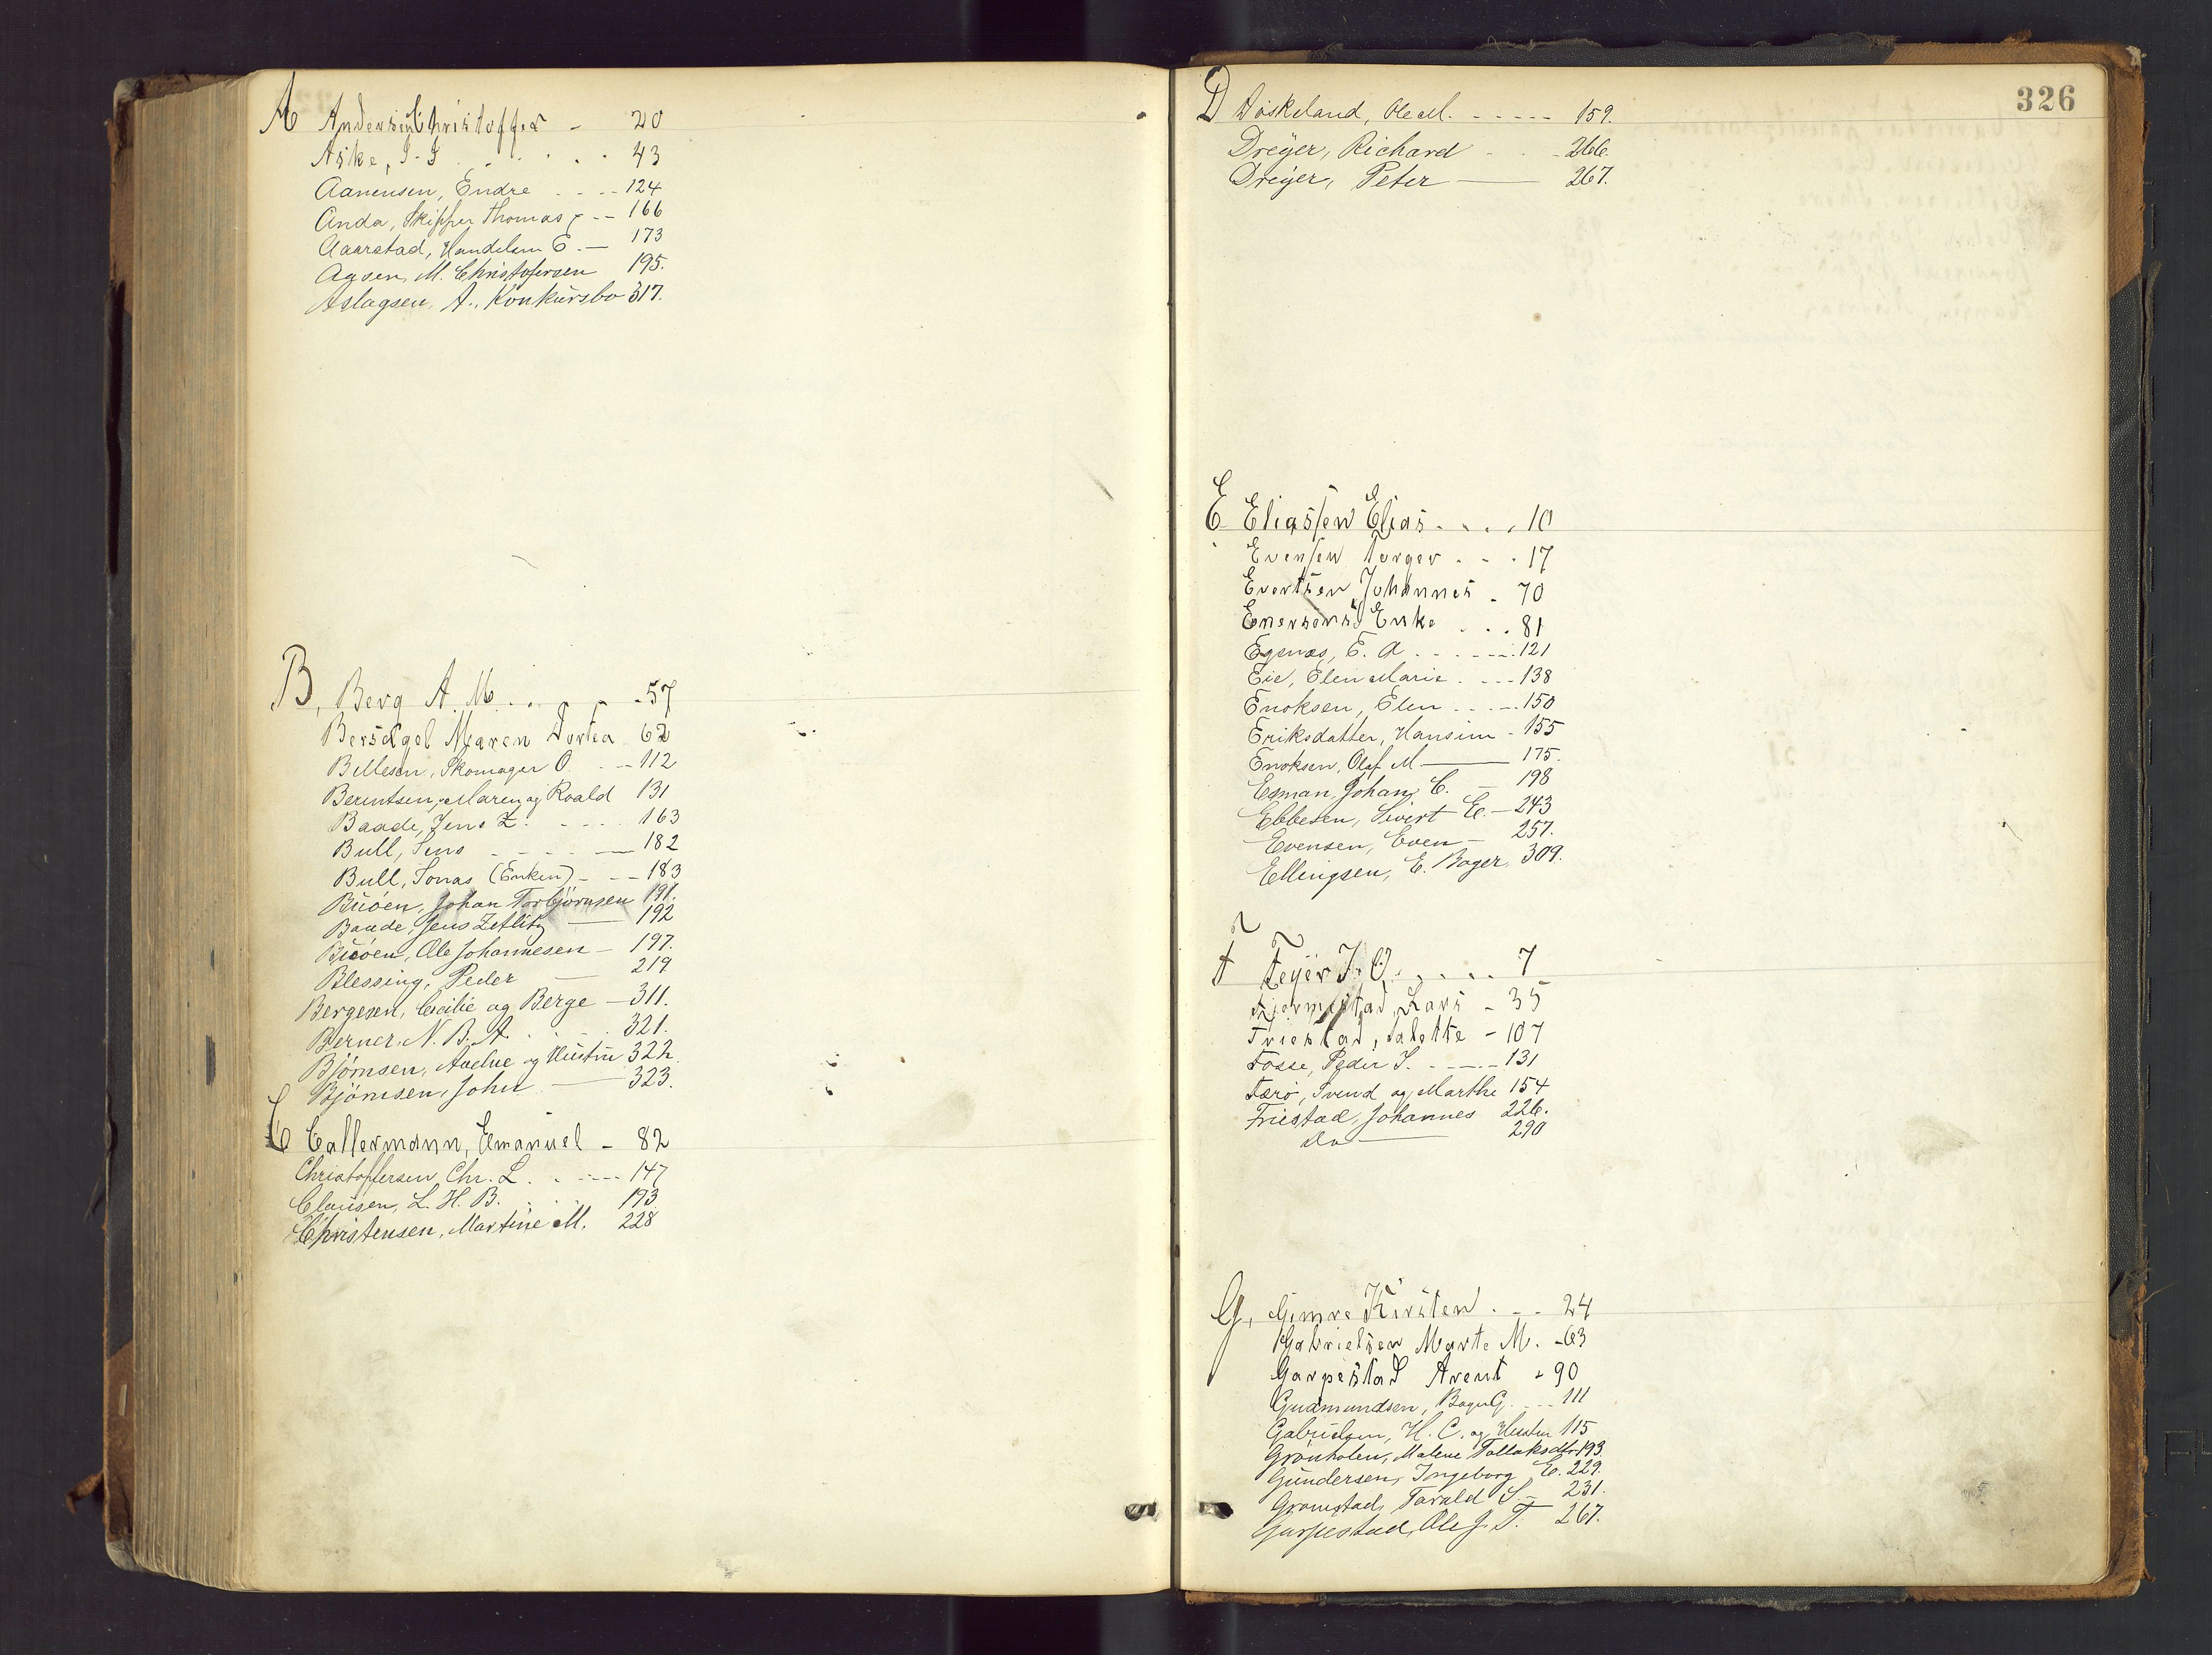 A Andersen Christoffer - 20
Aske, I. I. . . . . . 43
Aanensen, Endre . - - - 124
Anda, Skipper Thomas - - - 166
Aarstad, Handelsm E. — 173
Agsen, M. Christofersen 195.
Aslagsen, A., Konkursbo 317.
B, Berg A. M. . . - - - 57
Bersagel Maren Dortea 62
Bellesen, Skomager O. - - 112
Berentsen, Maren og Roald 131
Baade, Jens Z. - - - 163
Bull, Jens - - - — 182
Bull, Jonas (Enken) - - - 183
Buøen, Johan Torbjørnsen 191.
Baade, Jens Zetlitz — 192
Buøen, Ole Johannesen - 197.
Blessing, Peder — 219
Bergesen, Cecilie og Berge - 311.
Berner, N. B. A. . . . 321.
Bjørnsen, og Hustru 322.
Bjørnsen, John — 323.
C Callermann, Emanuel - 82
Christoffersen, Chr. L. . - - - 147
Clausen, L. H. B. . . . 193
Christensen, Martine M. 228
326
D Døskeland, Ole M. - - - - - 159.
Dreyer, Richard - - - 266.
Dreyer, Peter — 267.
E Eliassen Elias . . . . 10
Evensen Torger . - . 17
Evertsen Johannes . 70
Enersens Enke . . . 81
Egenæs, E. A. - - - - 121
Eie, Elen Marie . - - - 138
Enoksen, Elen - - - - 150
Eriksdatter, Hansine - 155
Enoksen, Olaf M — 175.
Esman, Johan C. — 198
Ebbesen, Sivert E. - 243
Evensen, Even — 257.
Ellingsen, E. Bager 309.
F Feyer I. O. . . . . 7
Fjermestad, Lars - 35
Friestad, Salette - 107
Fosse, Peder I. - - - - 131
Færø, Svend og Marthe 154
Friestad, Johannes 226.
Do — 290
G, Gimre Kirsten . - - 24
Gabrielsen Marte M. - 63
Garpestad Arent - 90
Gudmundsen, Bager G. - - - 111
Gabrielsen, H. C. og Hustru 115
Grønholen, Malene Tollaksdtr. 193.
Gundersen, Ingeborg E. 229.
Gronestad, Tarald S. - 231.
Garpestad, Ole J. T. 267.